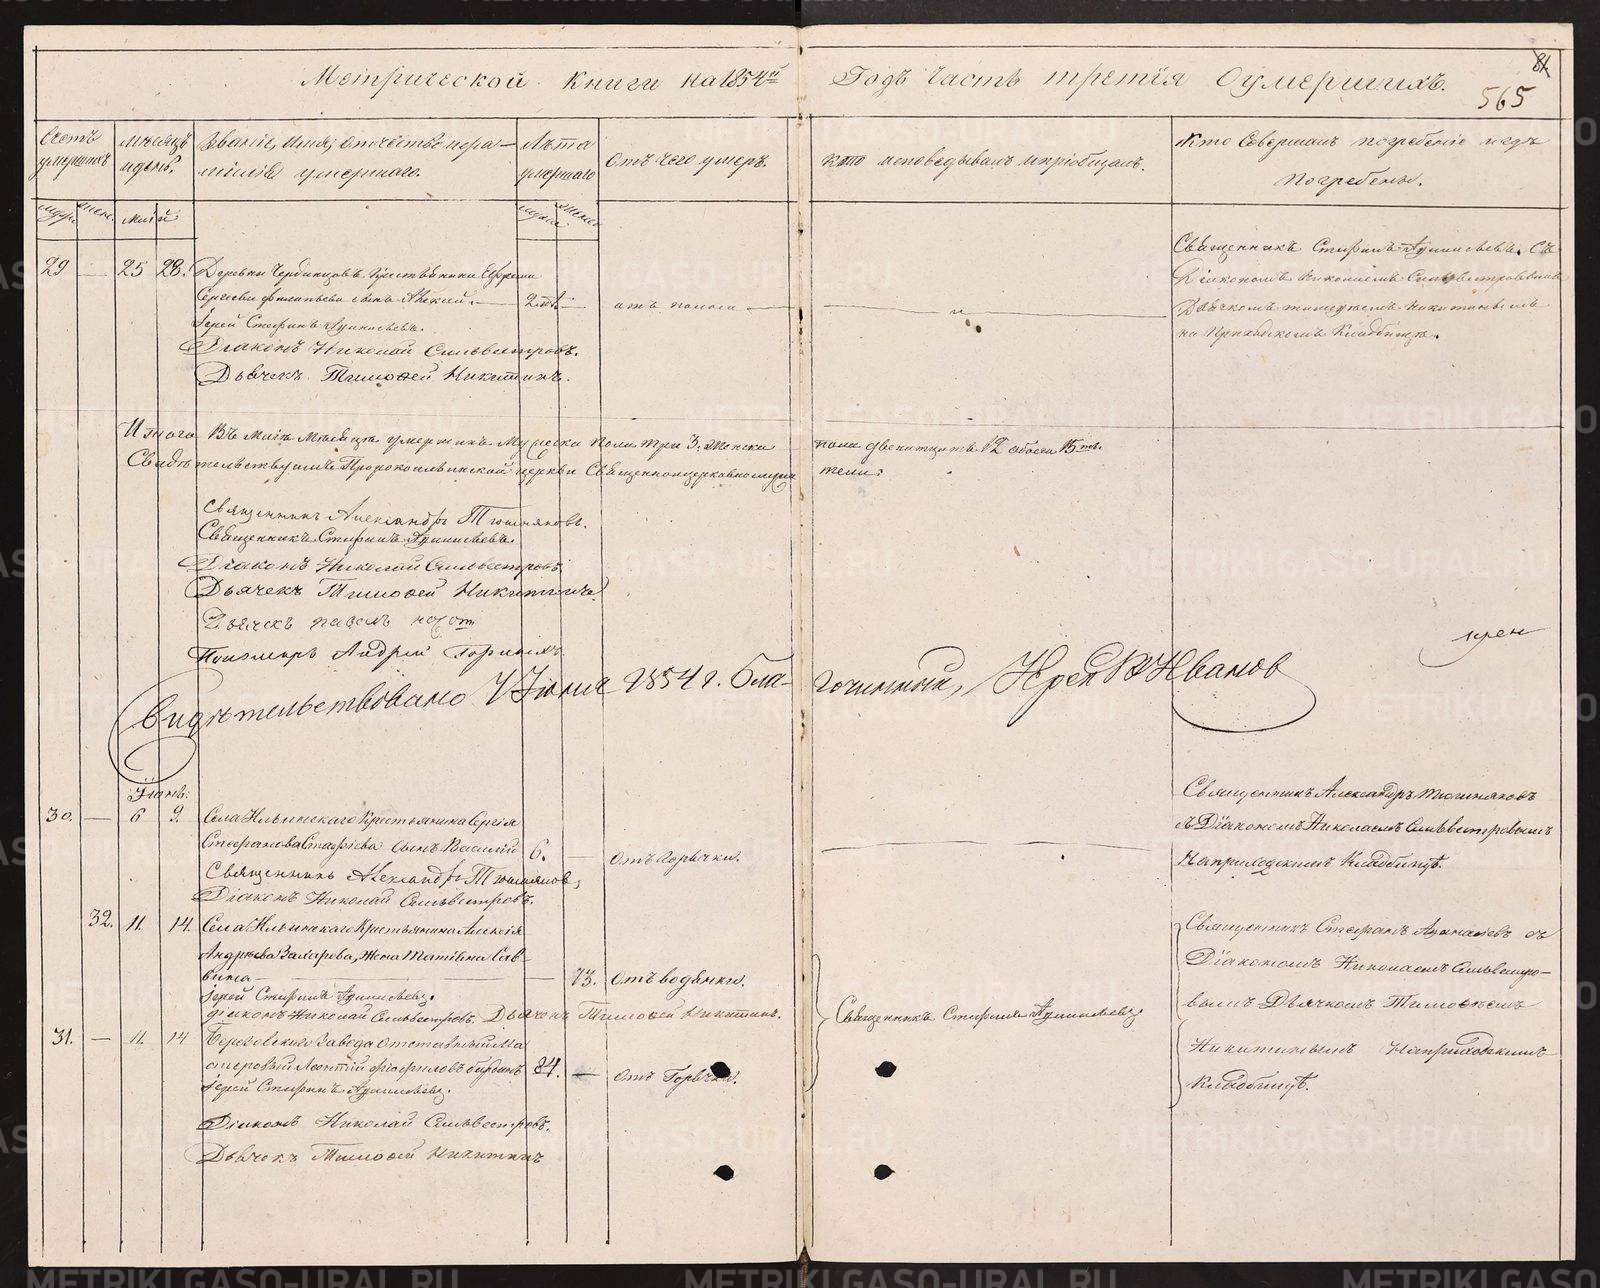 Метрической Книги на 1854й Годъ Часть третїя Оумершихъ.
84
565
Счетъ умершихъ
Мѣсяцъ и день.
Званіе, Имя, Отчество и фамилія умершаго.
Лѣта умершаго
Отъ чего умеръ.
кто исповѣдывалъ и пріобщалъ.
Кто Совершалъ погребеніе и гдѣ
Погребены.
Муж. Жен. Май
29 — 25 28. Деревни крестьянина Ефрема
Сергѣева сынъ Алексѣй. — 2 лѣт — отъ поноса —
Іерей Стефанъ
Діаконъ Николай Сильвестровъ.
Дьячекъ Тимоѳей Никитинъ.
Священникъ Стефанъ Съ
Діакономъ Николаемъ Сильвестровымъ
Дьячкомъ Тимоѳеемъ Никитинымъ
на Приходскомъ Кладбищѣ.
Итого Въ Маіѣ Мѣсяцѣ умершихъ Мужеска Пола три 3. Женска пола двенатцать 12 обоего 15ть.
Свидѣтельствуемъ Пророкоильинской церкви Священноцерковнослужители:
Священникъ Александръ Тюшняковъ.
Священникъ Стефанъ
Діаконъ Николай Сильвестровъ.
Дьячекъ Тимоѳей Никитинъ
Дьячекъ
Пономарь Андрей
Свидѣтельствовано Іюня 1854 г. Благочинный, Іерей Ивановъ
Іюнь.
30. — 6 9. Села Ильинскаго Крестьянина Сергія
Стефанова сынъ Василій 6. — Отъ Горячки.
Священникъ Александръ Тюшняковъ,
Діаконъ Николай Сильвестровъ.
Священникъ Александръ Тюшняковъ
съ Діакономъ Николаемъ Сильвестровымъ
На приходскомъ Кладбищѣ.
32. 11. 14. Села Ильинскаго Крестьянина Алексія
Андреева Захарова, Жена Татіана Савина — 73. Отъ водянки.
Іерей Стефанъ
діаконъ Николай Сильвестровъ. Дьячекъ Тимоѳей Никитинъ.
Священникъ Стефанъ
Священникъ Стефанъ съ
Діакономъ Николаемъ Сильвестровымъ Дьячкомъ Тимоѳеемъ
Никитинымъ На приходскомъ
кладбищѣ.
31. — 11. 14 Березовскаго Завода отставный мастеровый Леонтій 84. — отъ Горячки.
Іерей Стефанъ
Діаконъ Николай Сильвестровъ.
Дьячекъ Тимоѳей Никитинъ
METRIKI.GASO-URAL.RU